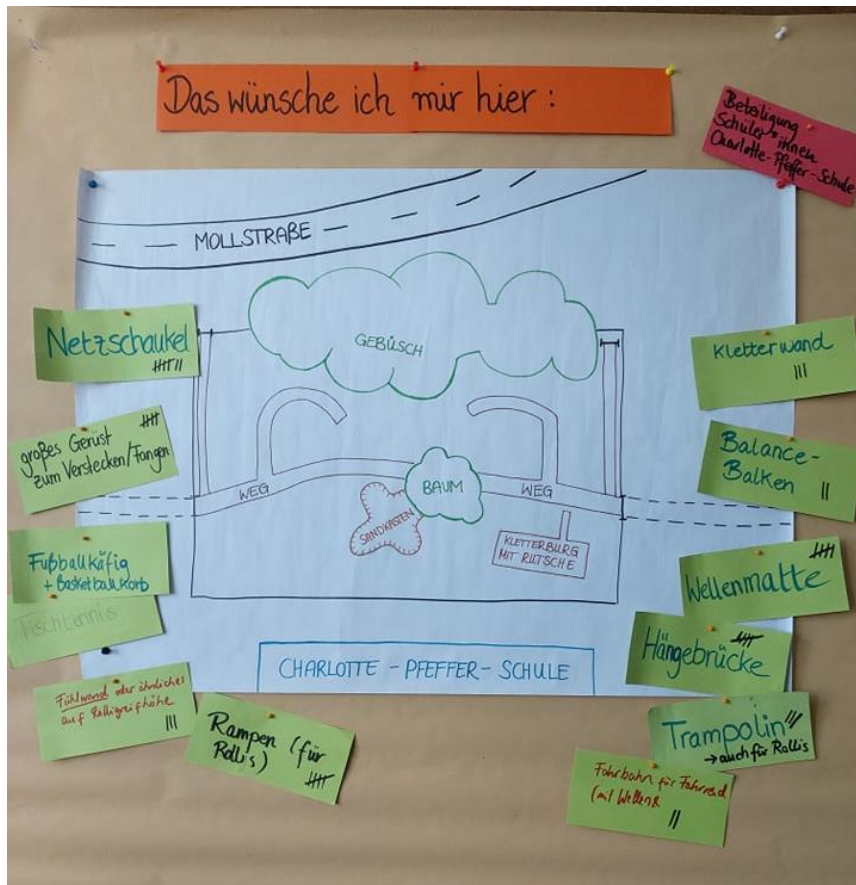 Das wünsche ich mir hier :
Beteiligung
Schüler*innen
Charlotte-Pfeffer-Schule
MOLLSTRAßE
GEBÜSCH
WEG
BAUM
WEG
SANDKASTEN
KLETTERBURG
MIT RUTSCHE
CHARLOTTE - PFEFFER - SCHULE
Netzschaukel
großes Gerüst
zum Verstecken/Fangen
Fußballkäfig
+ Basketballkorb
Tischtennis
Fühlwand oder ähnliches
auf Rolligreifhöhe
Rampen (für
Rollis)
Kletterwand
Balance-
Balken
Wellenmatte
Hängebrücke
Trampolin
→ auch für Rollis
Fahrbahn für Fahrrad
(mit Wellen